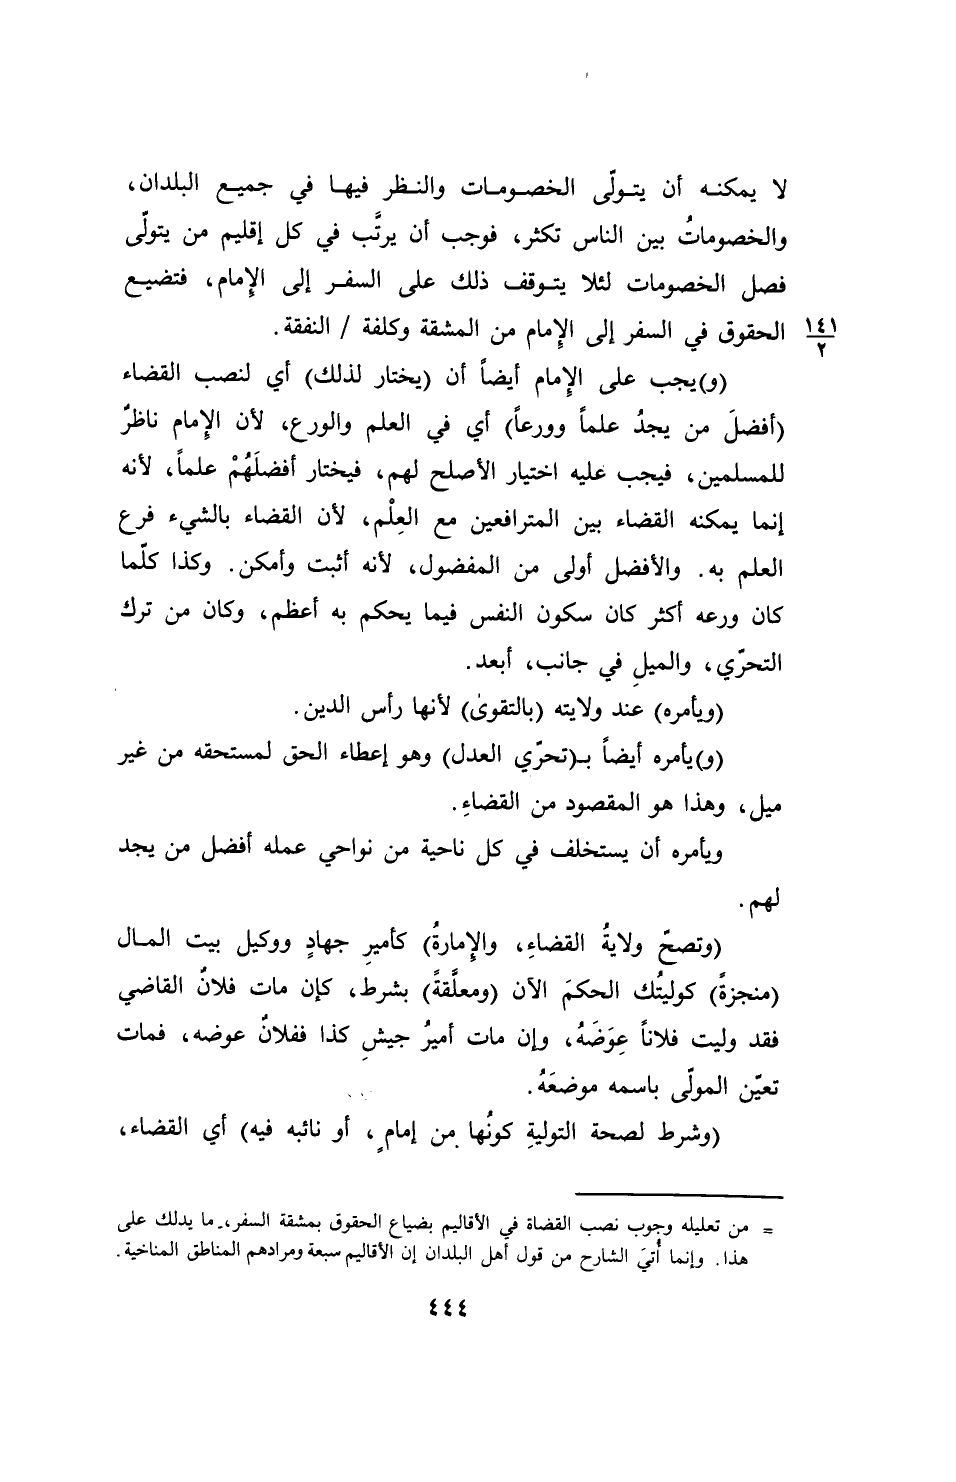 لا يمكنـه أن يتـولّى الخصـومـات والنـظر فيهـا في جميـع البلدان،
والخصوماتُ بين الناس تكثر، فوجب أن يرتَّب في كل إقليم من يتولّى
فصل الخصومات لئلا يتـوقف ذلك على السفـر إلى الإمام، فتضيـع
الحقوق في السفر إلى الإمام من المشقة وكلفة / النفقة.
١٤١
٢
(و)يجب على الإمام أيضاً أن (يختار لذلك) أي لنصب القضاء
(أفضلَ من يجدُ علماً وورعاً) أي في العلم والورع، لأن الإمام ناظرٌ
للمسلمين، فيجب عليه اختيار الأصلح لهم، فيختار أفضلَهُمْ علماً، لأنه
إنما يمكنه القضاء بين المترافعين مع العِلْم، لأن القضاء بالشيء فرع
العلم به. والأفضل أولى من المفضول، لأنه أثبت وأمكن. وكذا كلّما
كان ورعه أكثر كان سكون النفس فيما يحكم به أعظم، وكان من ترك
التحرّي، والميلِ في جانب، أبعد.
(ويأمره) عند ولايته (بالتقوىٰ) لأنها رأس الدين.
(و)يأمره أيضاً بـ(تحرّي العدل) وهو إعطاء الحق لمستحقه من غير
ميل، وهذا هو المقصود من القضاءِ.
ويأمره أن يستخلف في كل ناحية من نواحي عمله أفضل من يجد
لهم.
(وتصحّ ولايةُ القضاءِ، والإمارةُ) كأميرِ جهادٍ ووكيل بيت المـال
(منجزةً) كوليتُك الحكمَ الآن (ومعلَّقةً) بشرط، كإن مات فلانٌ القاضي
فقد وليت فلاناً عِوَضَهُ، وإن مات أميرُ جيشِ كذا ففلانٌ عوضه، فمات
تعيّن المولّى باسمه موضعَهُ.
(وشرط لصحة التوليةِ كونُها من إمامٍ، أو نائبه فيه) أي القضاء،
= من تعليله وجوب نصب القضاة في الأقاليم بضياع الحقوق بمشقة السفر، ما يدلك على
هذا. وإنما أُتيَ الشارح من قول أهل البلدان إن الأقاليم سبعة ومرادهم المناطق المناخية.
٤٤٤